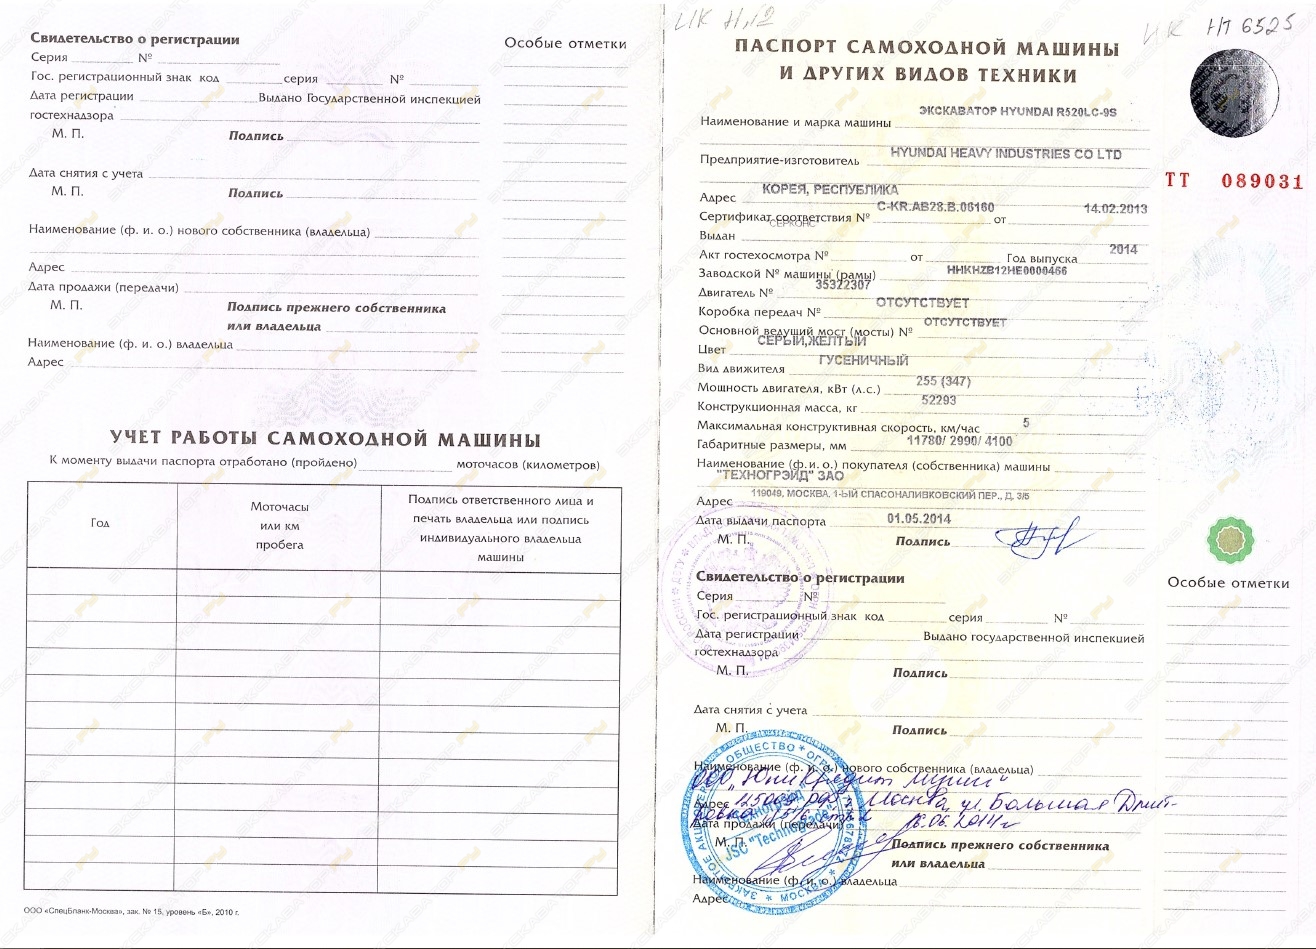 Свидетельство о регистрации
Серия № 
Гос. регистрационный знак код серия №
Дата регистрации Выдано Государственной инспекцией
гостехнадзора
М. П. Подпись
Дата снятия с учета
М. П. Подпись
Наименование (ф. и. о.) нового собственника (владельца)
Адрес
Дата продажи (передачи)
М. П. Подпись прежнего собственника
или владельца
Наименование (ф. и. о.) владельца
Адрес
Особые отметки
УЧЕТ РАБОТЫ САМОХОДНОЙ МАШИНЫ
К моменту выдачи паспорта отработано (пройдено) моточасов (километров)
Год
Моточасы
или км
пробега
Подпись ответственного лица и
печать владельца или подпись
индивидуального владельца
машины
ООО «СпецБланк-Москва», зак. № 15, уровень «Б», 2010 г.
ИК Н,12
ИК НП 6525
ПАСПОРТ САМОХОДНОЙ МАШИНЫ
И ДРУГИХ ВИДОВ ТЕХНИКИ
ТТ 089031
Наименование и марка машины ЭКСКАВАТОР HYUNDAI R520LC-9S
Предприятие-изготовитель HYUNDAI HEAVY INDUSTRIES CO LTD
Адрес КОРЕЯ, РЕСПУБЛИКА
Сертификат соответствия № C-KR.АВ28.В.06160 от 14.02.2013
Выдан СЕРКОНС
Акт гостехосмотра № от Год выпуска 2014
Заводской № машины (рамы) HHKHZB12HE0000466
Двигатель № 35322307
Коробка передач № ОТСУТСТВУЕТ
Основной ведущий мост (мосты) № ОТСУТСТВУЕТ
Цвет СЕРЫЙ,ЖЕЛТЫЙ
Вид движителя ГУСЕНИЧНЫЙ
Мощность двигателя, кВт (л.с.) 255 (347)
Конструкционная масса, кг 52293
Максимальная конструктивная скорость, км/час 5
Габаритные размеры, мм 11780/ 2990/ 4100
Наименование (ф.и.о.) покупателя (собственника) машины
"ТЕХНОГРЭЙД" ЗАО
Адрес 119049, МОСКВА, 1-ЫЙ СПАСОНАЛИВКОВСКИЙ ПЕР., Д. 3/5
Дата выдачи паспорта 01.05.2014
М. П. Подпись
Свидетельство о регистрации
Серия №
Гос. регистрационный знак код серия №
Дата регистрации Выдано государственной инспекцией
гостехнадзора
М. П. Подпись
Дата снятия с учета
М. П. Подпись
Наименование (ф. и. о.) нового собственника (владельца)
ООО "ЮниКредит Лизинг"
Адрес РФ Москва, ул. Большая Дмит-
ровка
Дата продажи (передачи) 16.06.2014г
М. П. Подпись прежнего собственника
или владельца
Наименование (ф. и. о.) владельца
Адрес
Особые отметки
Техногрэйд
JSC "Technograde"
МОСКВА